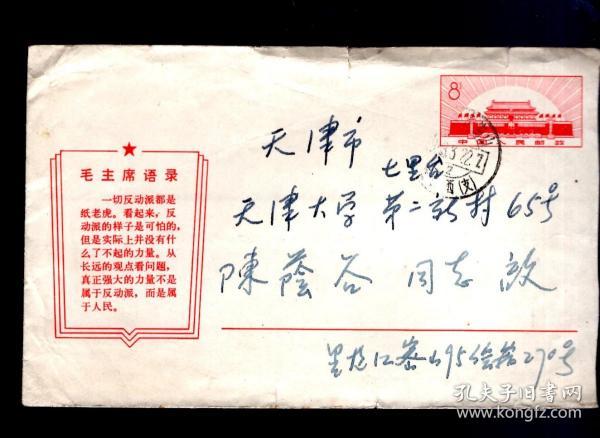 8
中国人民邮政
毛主席语录
一切反动派都是
纸老虎。看起来，反
动派的样子是可怕的，
但是实际上并没有什
么了不起的力量。从
长远的观点看问题，
真正强大的力量不是
属于反动派，而是属
于人民。
天津市
七里台
天津大学 第二新村 65号
陳蔭谷 同志 啟
黑龙江 95 270号
孔夫子旧书网
www.kongfz.com